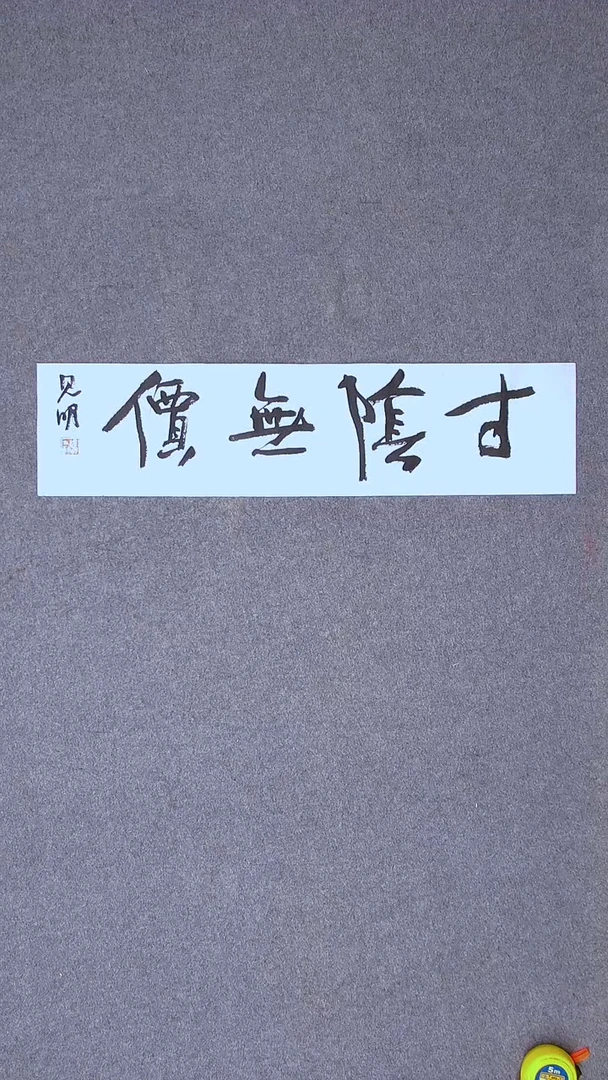 寸陰無價
見明
5m